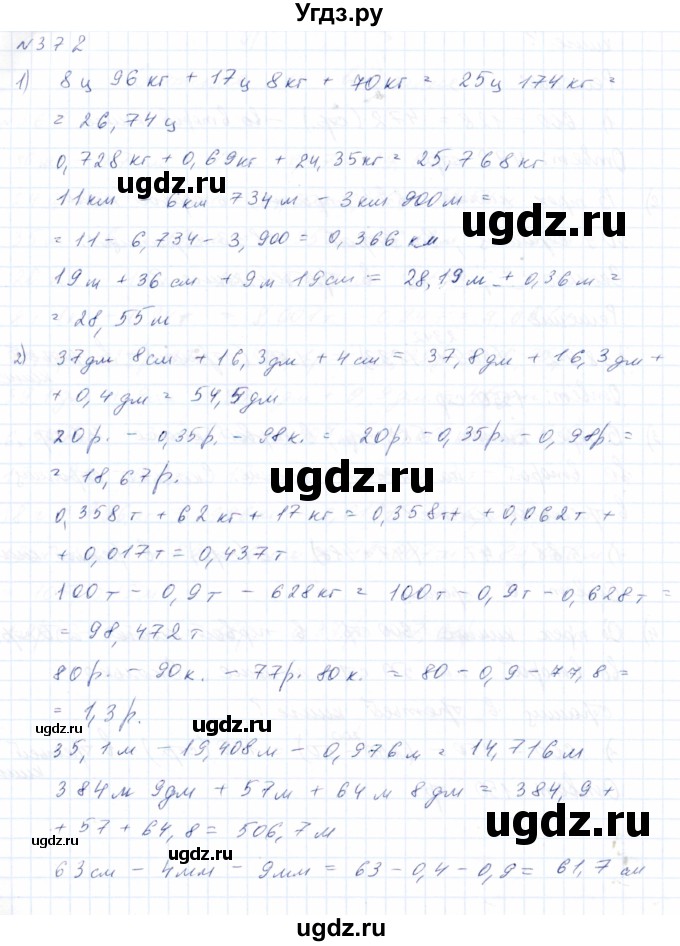 Угдз.ру
№372
1) 8ц 96кг + 17ц 8кг + 70кг = 25ц 174кг =
= 26,74ц
0,728кг + 0,69кг + 24,35кг = 25,768кг
ugdz.ru
11км - 6км 734м - 3км 900м =
ugdz.ru
= 11 - 6,734 - 3,900 = 0,366км
19м + 36см + 9м 19см = 28,19м + 0,36м =
= 28,55м
2) 37дм 8см + 16,3дм + 4см = 37,8дм + 16,3дм +
+ 0,4дм = 54,5дм
20р. - 0,35р. - 98к. = 20р - 0,35р. - 0,98р. =
ugdz.ru
= 18,67р.
0,358т + 62кг + 17кг = 0,358т + + 0,062т +
+ 0,017т = 0,437т
100т - 0,9т - 628кг = 100т - 0,9т - 0,628т =
= 98,472т
80р. - 90к. - 77р. 80к. = 80 - 0,9 - 77,8 =
= 1,3р.
ugdz.ru
ugdz.ru
35,1м - 19,408м - 0,976м = 14,716м
384м 9дм + 57м + 64м 8дм = 384,9 +
ugdz.ru
+ 57 + 64,8 = 506,7м
ugdz.ru
ugdz.ru
63см - 4мм - 9мм = 63 - 0,4 - 0,9 = 61,7см
ugdz.ru